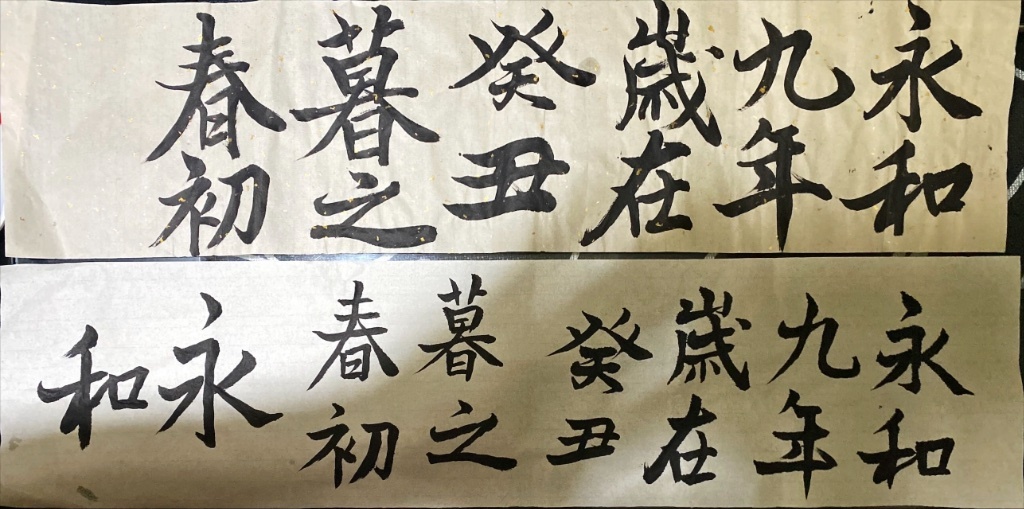 永和
九年
歲在
癸丑
暮之
春初
永和
九年
歲在
癸丑
暮之
春初
永
和